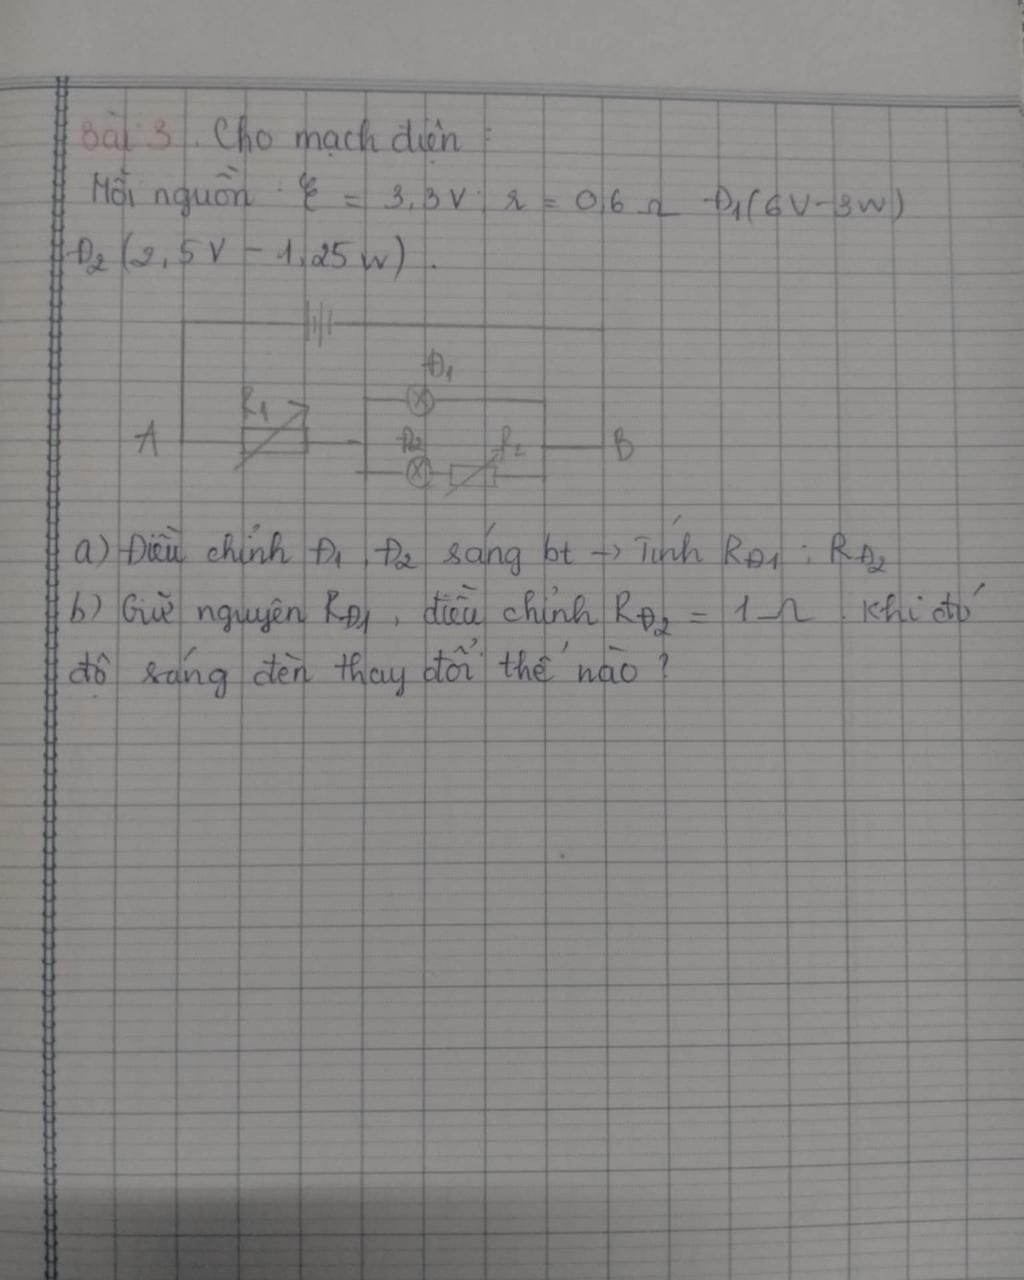 Bài 3. Cho mạch điện :
Mỗi nguồn : ξ = 3,3V ; r = 0,6 Ω Đ1 (6V - 3W)
Đ2 (2,5V - 1,25W) .
Đ1
R1
A
Đ2
R2
B
a) Điều chỉnh Đ1, Đ2 sáng bt → Tính RĐ1 ; RĐ2
b) Giữ nguyên RĐ1, điều chỉnh RĐ2 = 1 Ω . Khi đó
độ sáng đèn thay đổi thế nào ?